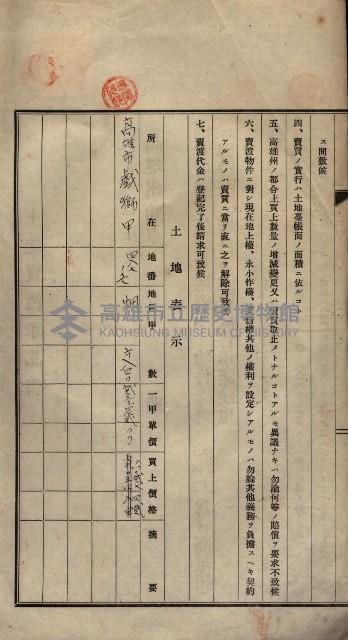 ス間敷候
四、賣買ノ實行ハ土地臺帳面ノ面積ニ依ルコト
五、高雄州ノ都合上買上數量ノ增減變更又ハ賣買取止メトナルコトアルモ異議ナキハ勿論何等ノ賠償ヲ要求不致候
六、賣渡物件ニ對シ現在地上權、永小作權、質權其他ノ權利ヲ設定シアルモノハ勿論其他義務ヲ負擔スヘキ契約
アルモノハ賣買ニ當リ直ニ之ヲ解除可致候
七、賣渡代金ハ登記完了後請求可致候
土地表示
所在 地番 地目 甲數 一甲單價 買上價格 摘要
高雄市戲獅甲
高雄市立歷史博物館
KAOHSIUNG MUSEUM OF HISTORY